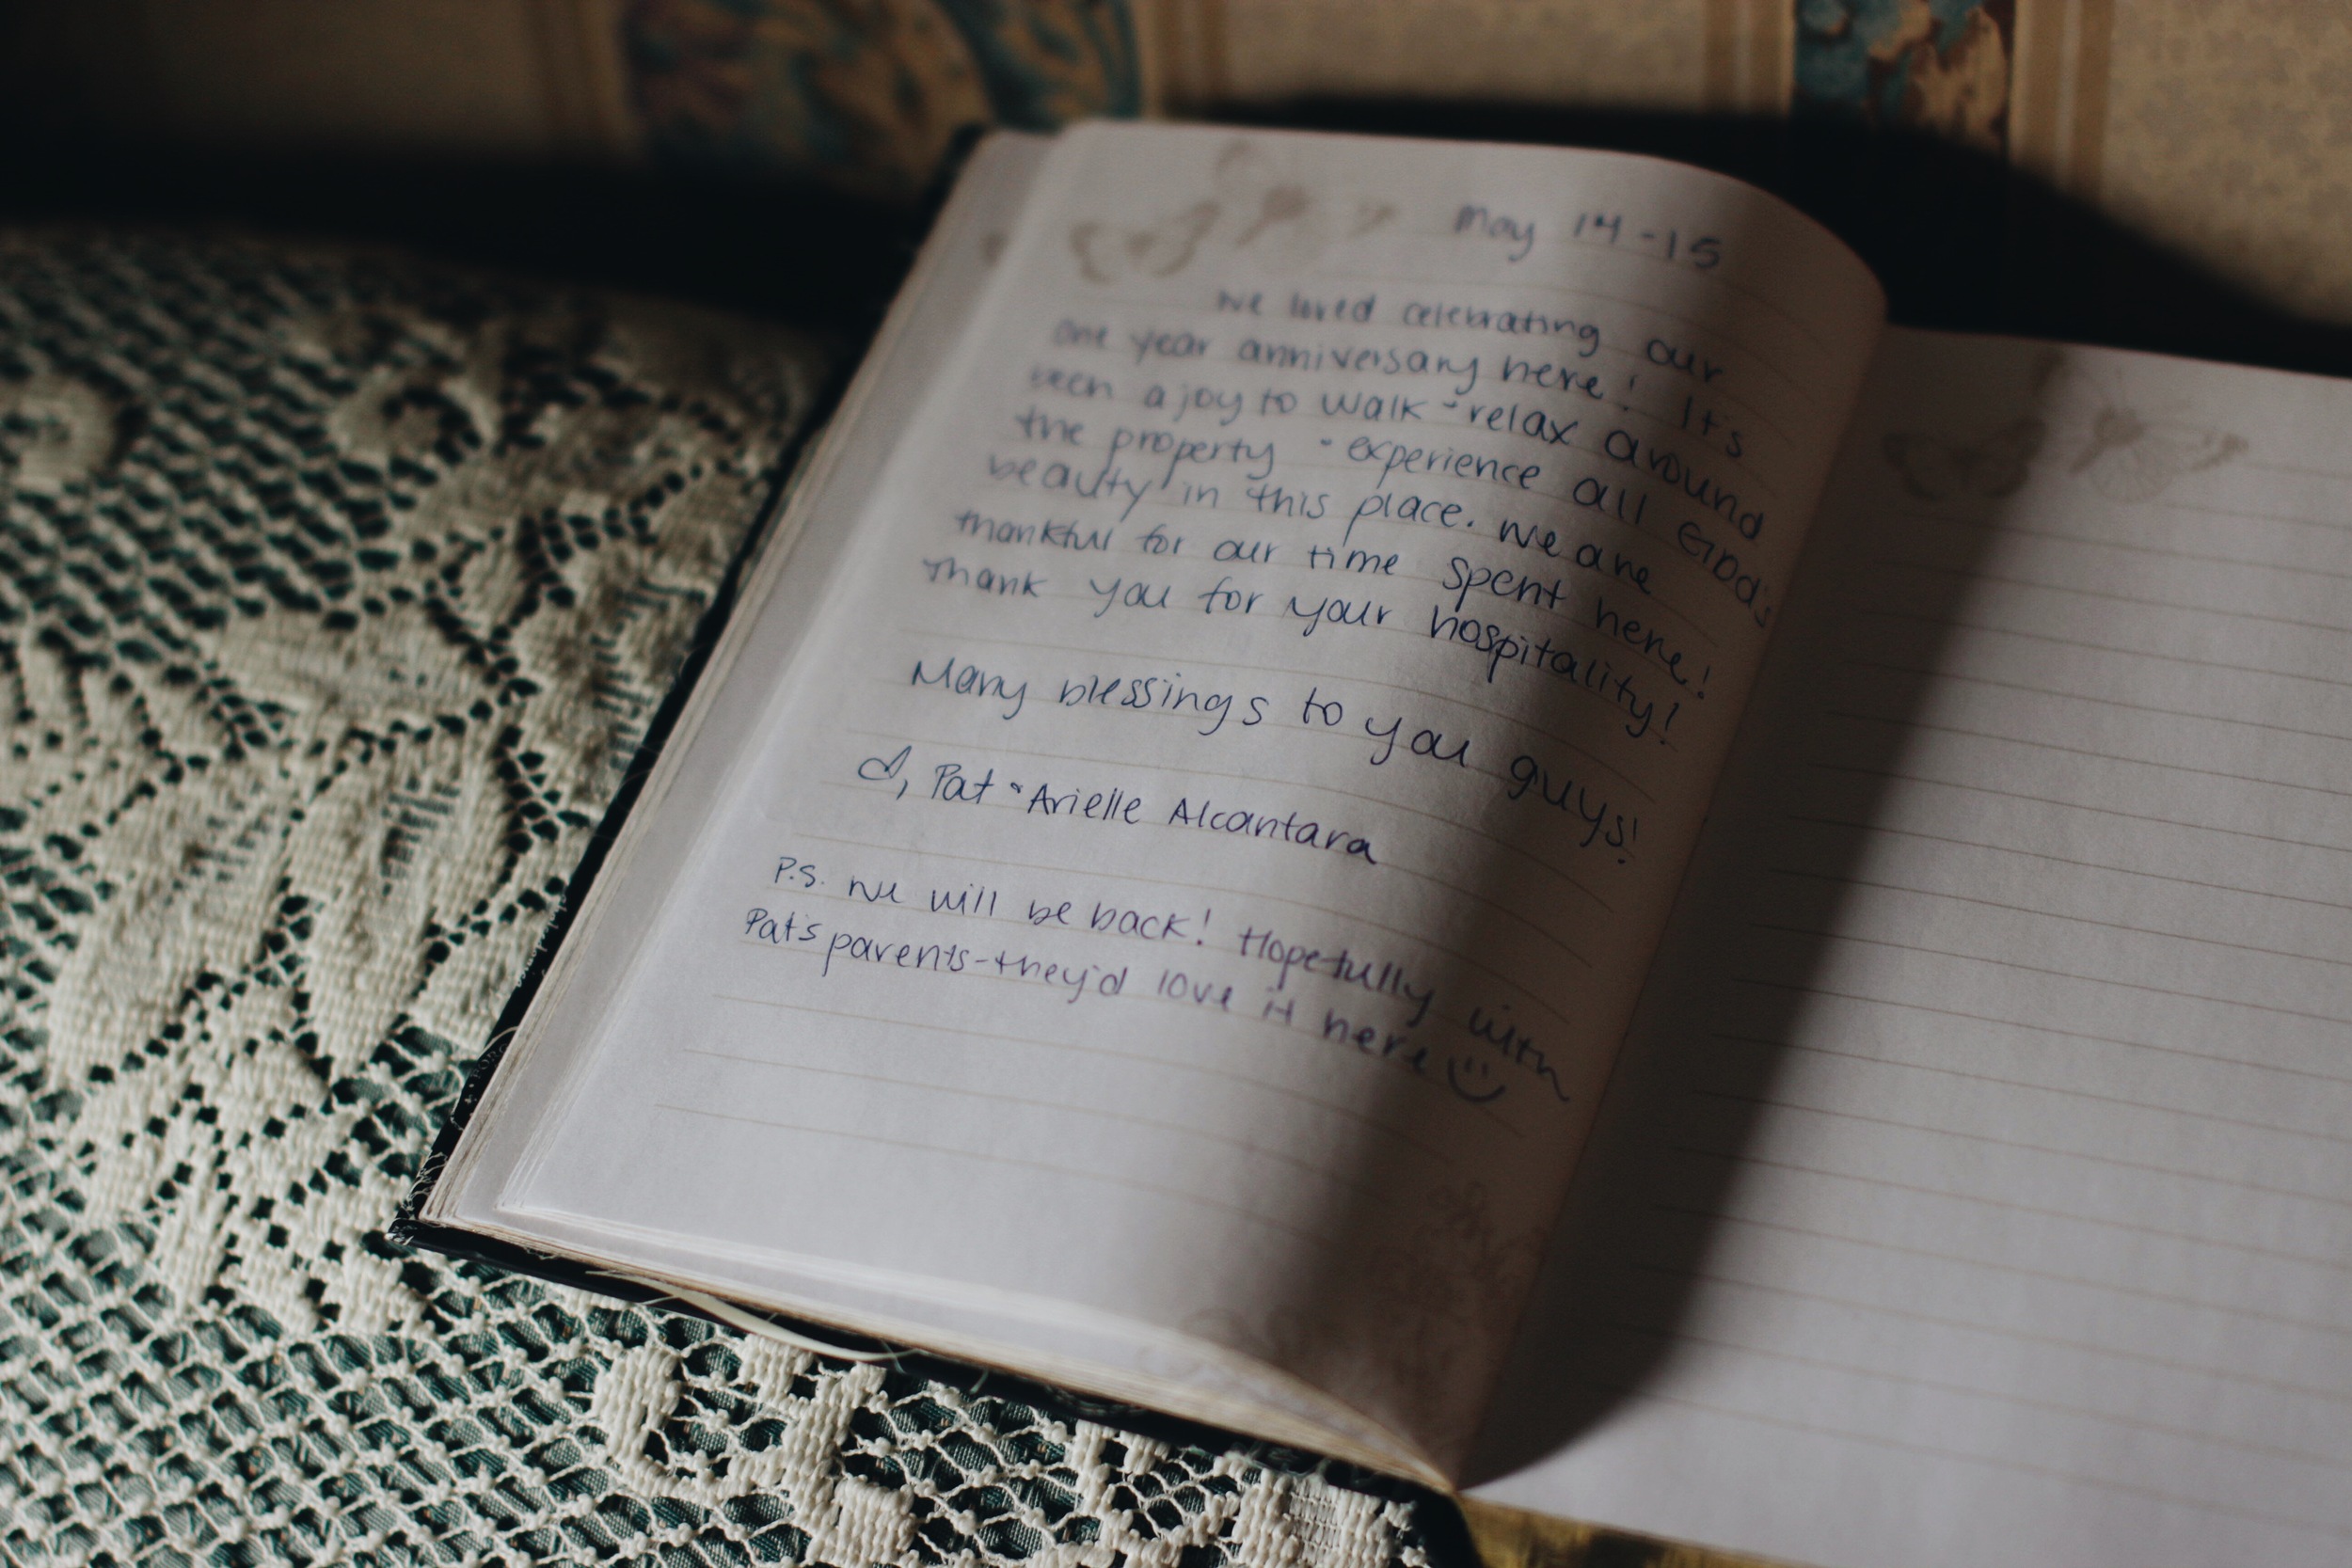 May 14-15
We loved celebrating our
one year anniversary here! It's
been a joy to walk + relax around
the property + experience all God's
beauty in this place. We are
thankful for our time spent here!
Thank you for your hospitality!
Many blessings to you guys!
♡, Pat + Arielle Alcantara
P.S. We will be back! Hopefully with
Pat's parents-they'd love it here :)